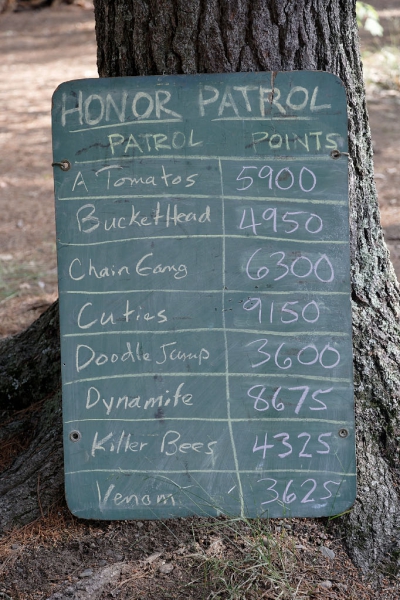 HONOR PATROL
PATROL POINTS
A Tomatos 5900
BucketHead 4950
Chain Gang 6300
Cuties 9150
Doodle Jump 3600
Dynamite 8675
Killer Bees 4325
Venom 3625